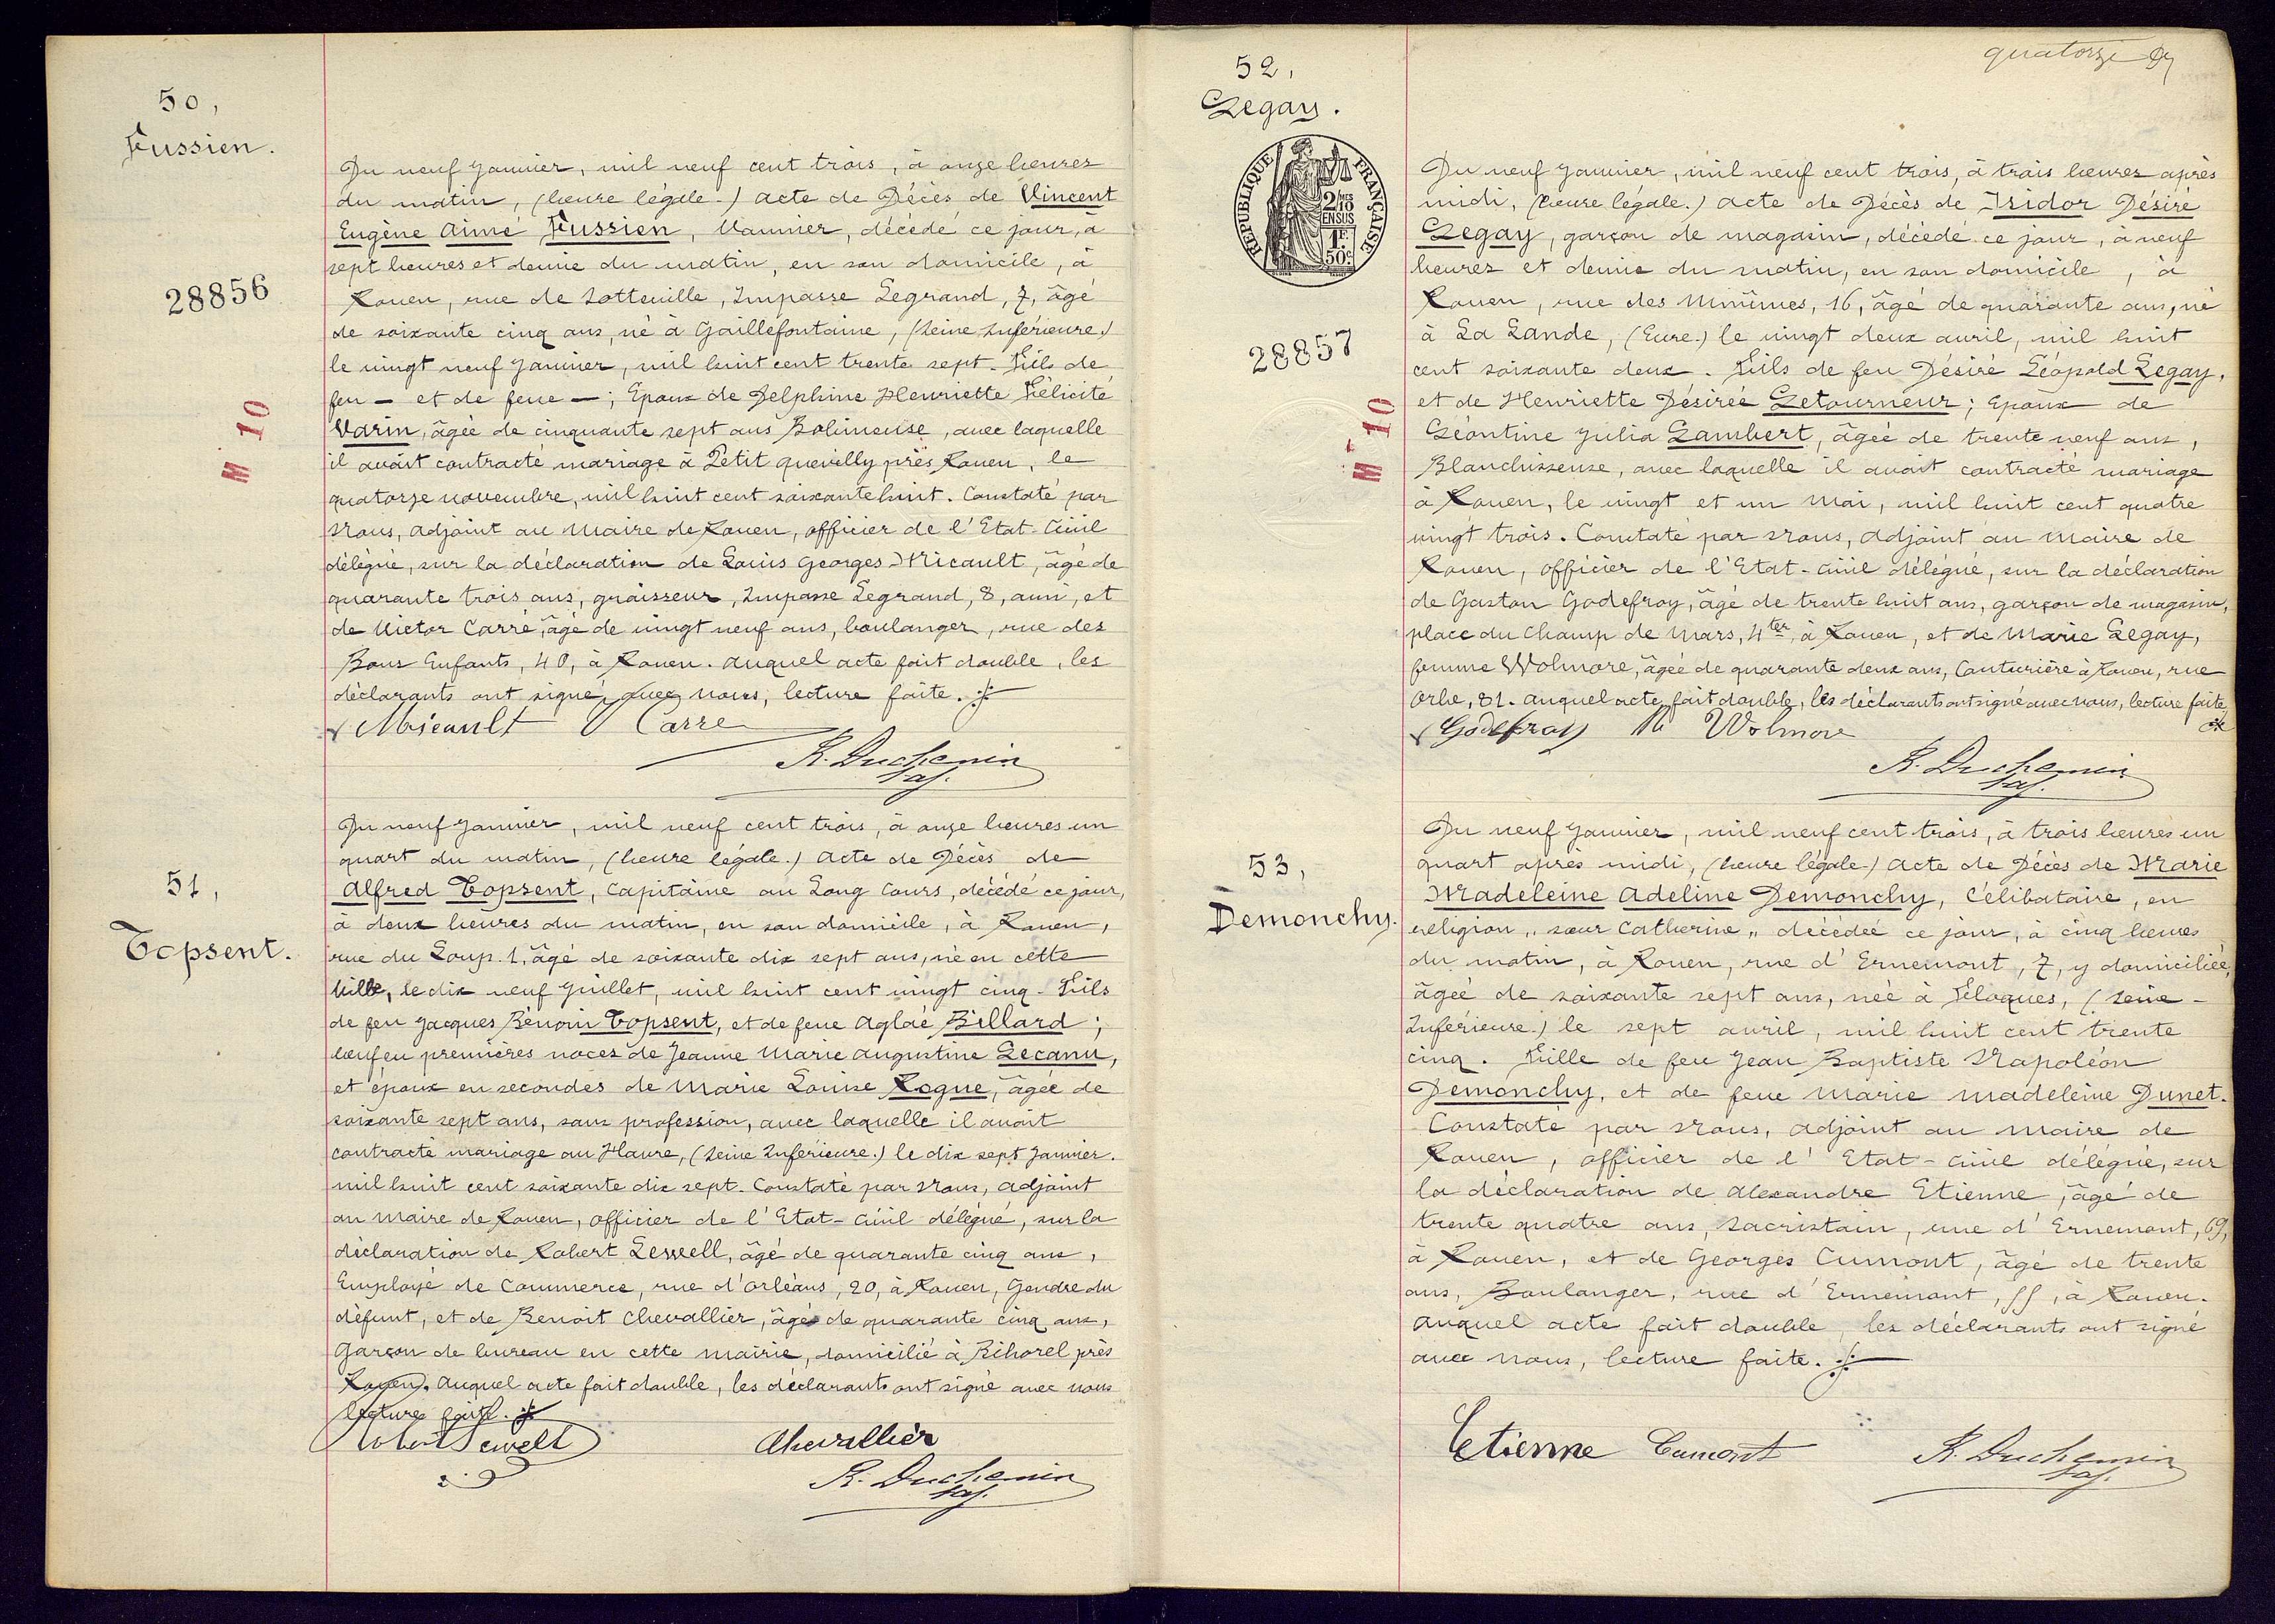 50,
Fussien.
28856
M 10
Du neuf Janvier, mil neuf cent trois, à onze heures
du matin, (heure légale.) Acte de Décès de Vincent
Eugène Aimé Fussien, Vannier, décédé ce jour, à
sept heures et demie du matin, en son domicile, à
Rouen, rue de Sotteville, Impasse Legrand, 7, âgé
de soixante cinq ans, né à Gaillefontaine, (Seine Inférieure.)
le vingt neuf Janvier, mil huit cent trente sept. Fils de
feu — et de feue — ; Epoux de Delphine Henriette Félicité
Varin, âgée de cinquante sept ans Bobineuse, avec laquelle
il avait contracté mariage à Petit Quevilly près Rouen, le
quatorze novembre, mil huit cent soixante huit. Constaté par
Nous, adjoint au Maire de Rouen, officier de l'Etat-Civil
délégué, sur la déclaration de Louis Georges Micault, âgé de
quarante trois ans, graisseur, Impasse Legrand, 8, ami, et
de Victor Carré, âgé de vingt neuf ans, boulanger, rue des
Bons Enfants, 40, à Rouen. Auquel acte fait double, les
déclarants ont signé, avec nous, lecture faite.
Micault V Carre
R. Duchemin
adj.
51,
Topsent.
Du neuf Janvier, mil neuf cent trois, à onze heures un
quart du matin, (heure légale.) Acte de Décès de
Alfred Topsent, Capitaine au Long Cours, décédé ce jour,
à deux heures du matin, en son domicile, à Rouen,
rue du Loup. 1, âgé de soixante dix sept ans, né en cette
Ville, le dix neuf Juillet, mil huit cent vingt cinq. Fils
de feu Jacques Bénoni Topsent, et de feue Aglaé Billard ;
veuf en premières noces de Jeanne Marie Augustine Lecanu,
et époux en secondes de Marie Louise Rogue, âgée de
soixante sept ans, sans profession, avec laquelle il avait
contracté mariage au Havre, (Seine Inférieure.) le dix sept Janvier.
mil huit cent soixante dix sept. Constaté par Nous, adjoint
au Maire de Rouen, officier de l'Etat-Civil délégué, sur la
déclaration de Robert Sewell, âgé de quarante cinq ans,
Employé de Commerce, rue d'Orléans, 20, à Rouen, Gendre du
défunt, et de Benoit Chevallier, âgé de quarante cinq ans,
Garçon de bureau en cette mairie, domicilié à Bihorel près
Rouen. Auquel acte fait double, les déclarants ont signé avec nous
lecture faite.
Robert Sewell Chevallier
R. Duchemin
adj.
quatorze
52,
Legay.
RÉPUBLIQUE FRANÇAISE
2/10 EN SUS
1F.
50c.
28857
M 10
Du neuf Janvier, mil neuf cent trois, à trois heures après
midi, (heure légale.) Acte de Décès de Isidor Désiré
Legay, garçon de magasin, décédé ce jour, à neuf
heures et demie du matin, en son domicile, à
Rouen, rue des Minimes, 16, âgé de quarante ans, né
à La Lande, (Eure.) le vingt deux avril, mil huit
cent soixante deux. Fils de feu Désiré Léopold Legay,
et de Henriette Désirée Letourneur ; Epoux de
Léontine Julia Lambert, âgée de trente neuf ans,
Blanchisseuse, avec laquelle il avait contracté mariage
à Rouen, le vingt et un Mai, mil huit cent quatre
vingt trois. Constaté par Nous, adjoint au Maire de
Rouen, officier de l'Etat-Civil délégué, sur la déclaration
de Gaston Godefroy, âgé de trente huit ans, garçon de magasin,
place du Champ de Mars, 4ter, à Rouen, et de Marie Legay,
femme Wolmore, âgée de quarante deux ans, Couturière à Rouen, rue
Orbe, 81. Auquel acte fait double, les déclarants ont signé avec nous, lecture faite
Godefroy M Wolmore
R. Duchemin
adj.
53,
Demonchy.
Du neuf Janvier, mil neuf cent trois, à trois heures un
quart après midi, (heure légale.) Acte de Décès de Marie
Madeleine Adeline Demonchy, Célibataire, en
religion „ sœur Catherine „ décédée ce jour, à cinq heures
du matin, à Rouen, rue d'Ernemont, 7, y domiciliée,
âgée de soixante sept ans, née à Floques, (Seine-
Inférieure.) le sept avril, mil huit cent trente
cinq. Fille de feu Jean Baptiste Napoléon
Demonchy, et de feue Marie Madeleine Dunet.
Constaté par Nous, adjoint au Maire de
Rouen, officier de l'Etat-Civil délégué, sur
la déclaration de Alexandre Etienne, âgé de
trente quatre ans, Sacristain, rue d'Ernemont, 69,
à Rouen, et de Georges Cumont, âgé de trente
ans, Boulanger, rue d'Ernemont, 55, à Rouen.
Auquel acte fait double, les déclarants ont signé
avec nous, lecture faite.
Etienne Cumont R. Duchemin
adj.